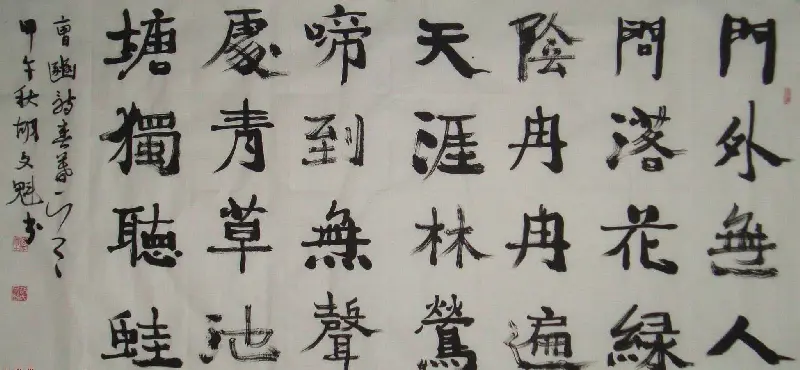 門外無人
問落花緑
陰冉冉遍
天涯林鶯
啼到無聲
處青草池
塘獨聽蛙
曹豳詩春暮一
甲午秋胡文魁书